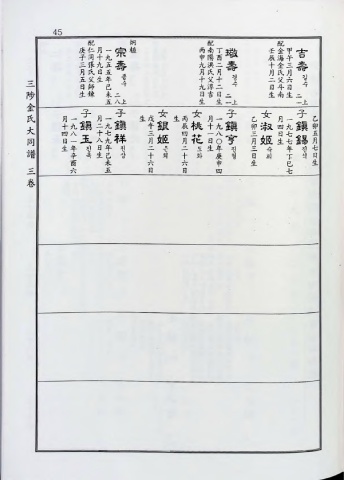 45
三陟金氏大同譜 三卷
吉壽 길수 二一上
甲午三月六日生
配金海金氏父斗南
壬辰十月二日生
璥壽 경수 二一上
丁酉二月十二日生
配南陽洪氏父淳吉
丙申九月十九日生
炯植
宗壽 종수 二八上
一九五五年乙未
月十九日生
配仁同張氏父師鍾
庚子三月五日生
乙卯五月七日生
子鎭錫 진석
一九七七年丁巳七
月四日生
女淑姬 숙희
乙卯三月三日生
子鎭亨 진형
一九八〇年庚申四
月十一日生
女桃花 도화
丙辰四月二十六日
生
女銀姬 은희
戊午三月二十六日
生
子鎭祥 진상
一九七九年己未五
月二十八日生
子鎭玉 진옥
一九八一年辛酉六
月十四日生